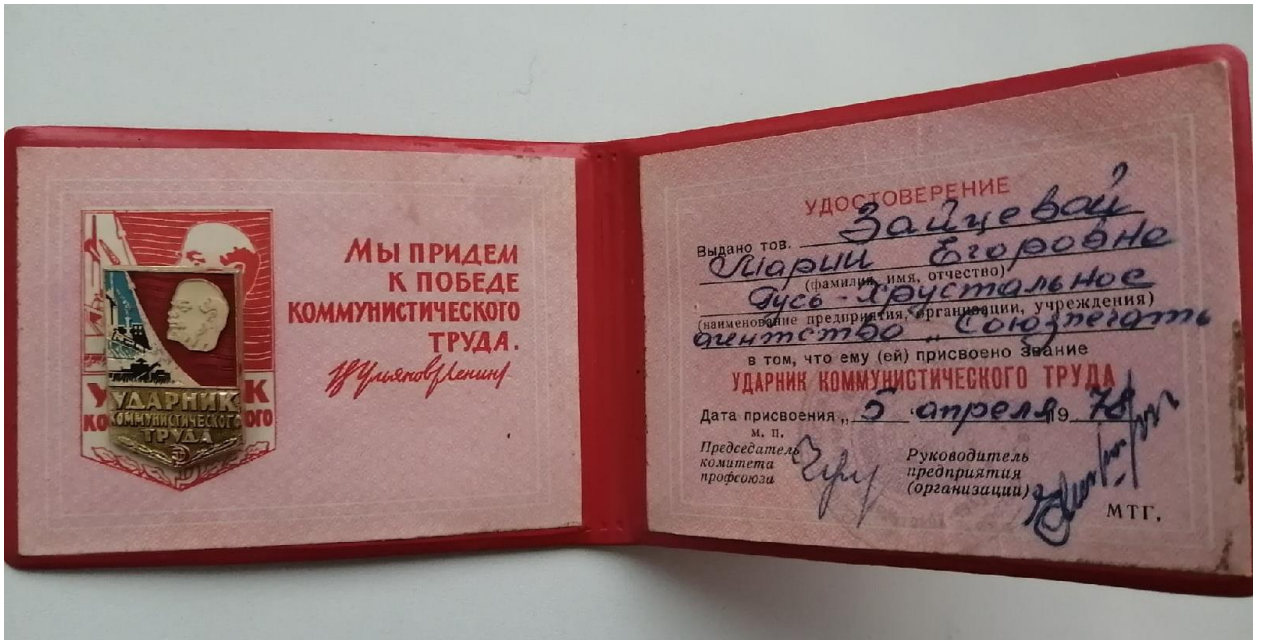 УДАРНИК
КОММУНИСТИЧЕСКОГО
ТРУДА
МЫ ПРИДЕМ
К ПОБЕДЕ
КОММУНИСТИЧЕСКОГО
ТРУДА.
В Ульянов (Ленин)
УДОСТОВЕРЕНИЕ
Выдано тов. Зайцевой
Марии Егоровне
(фамилия, имя, отчество)
Гусь-Хрустальное
(наименование предприятия, организации, учреждения)
агентство „Союзпечать
в том, что ему (ей) присвоено звание
УДАРНИК КОММУНИСТИЧЕСКОГО ТРУДА
Дата присвоения „5 апреля 1978
м. п.
Председатель
комитета
профсоюза
Руководитель
предприятия
(организации)
МТГ.